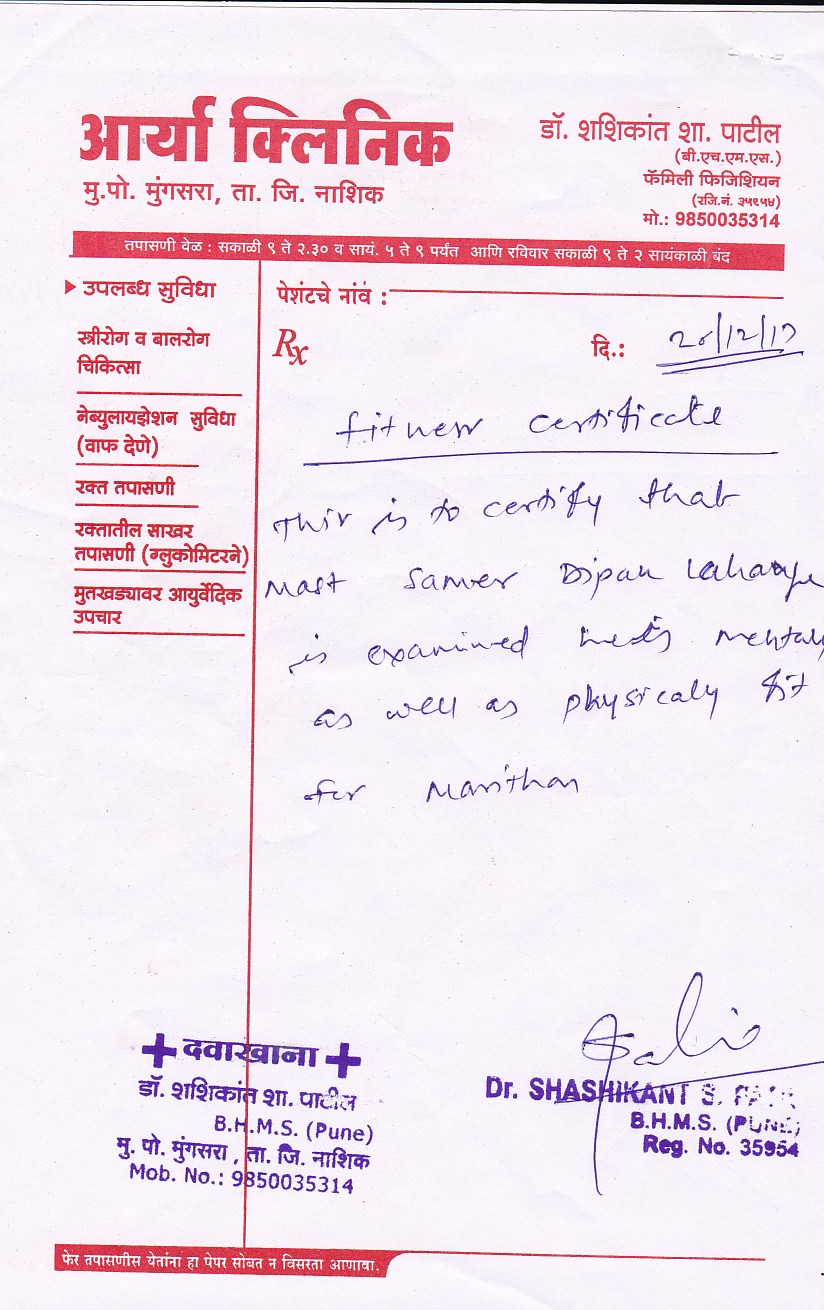 आर्या क्लिनिक
मु.पो. मुंगसरा, ता. जि. नाशिक
डॉ. शशिकांत शा. पाटील
(बी.एच.एम.एस.)
फॅमिली फिजिशियन
(रजि.नं. ३५९५४)
मो.: 9850035314
तपासणी वेळ : सकाळी ९ ते २.३० व सायं. ५ ते ९ पर्यंत आणि रविवार सकाळी ९ ते २ सायंकाळी बंद
उपलब्ध सुविधा
स्त्रीरोग व बालरोग
चिकित्सा
नेब्युलायझेशन सुविधा
(वाफ देणे)
रक्त तपासणी
रक्तातील साखर
तपासणी (ग्लुकोमिटरने)
मुतखड्यावर आयुर्वेदिक
उपचार
पेशंटचे नांव :
Rx
दि.:
fitness certificate
This is to certify that
Mast Samer Dipak
is examined
as well as physicaly fit
for Marithan
दवाखाना
डॉ. शशिकांत शा. पाटील
B.H.M.S. (Pune)
मु. पो. मुंगसरा , ता. जि. नाशिक
Mob. No.: 9850035314
Dr. SHASHIKANT S.
B.H.M.S. (PUNE)
Reg. No. 35954
फेर तपासणीस येतांना हा पेपर सोबत न विसरता आणावा.